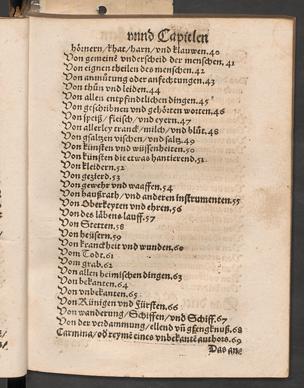 vnnd Capitelen
hörnern/khat/harn/vnd klauwen.40
Von gemeinẽ vnderscheid der menschen.41
Von eignen theilen des menschen.42
Von anmůtung oder anfechtungen.43
Von thůn vnd leiden.44
Von allen entpfindtlichen dingen.45
Von geschribnen vnd gehörten worten.46
Von speiß/fleisch/vnd eyern.47
Von allerley tranck/milch/vnd blůt.48
Von gsaltzen vischen/vnd saltz.49
Von künsten vnd wüssenheiten.50
Von künsten die etwas hantierend.51
Von kleidern.52
Von gezierd.53
Von gewehr vnd waaffen.54
Von haußrath/vnd anderen instrumenten.55
Von Oberkeyten vnd ehren.56
Von des läbens lauff.57
Von Stetten.58
Von heüsern.59
Von kranckheit vnd wunden.60
Vom Todt.61
Vom grab.62
Von allen heimischen dingen.63
Von bekanten.64
Von vnbekanten.65
Von Künigen vnd Fürsten.66
Von wanderung/Schiffen/vnd Schiff.67
Von der verdammung/ellend vñ gfengknuß.68
Carmina/od reymẽ eines vnbekantẽ authors.69
Das ane